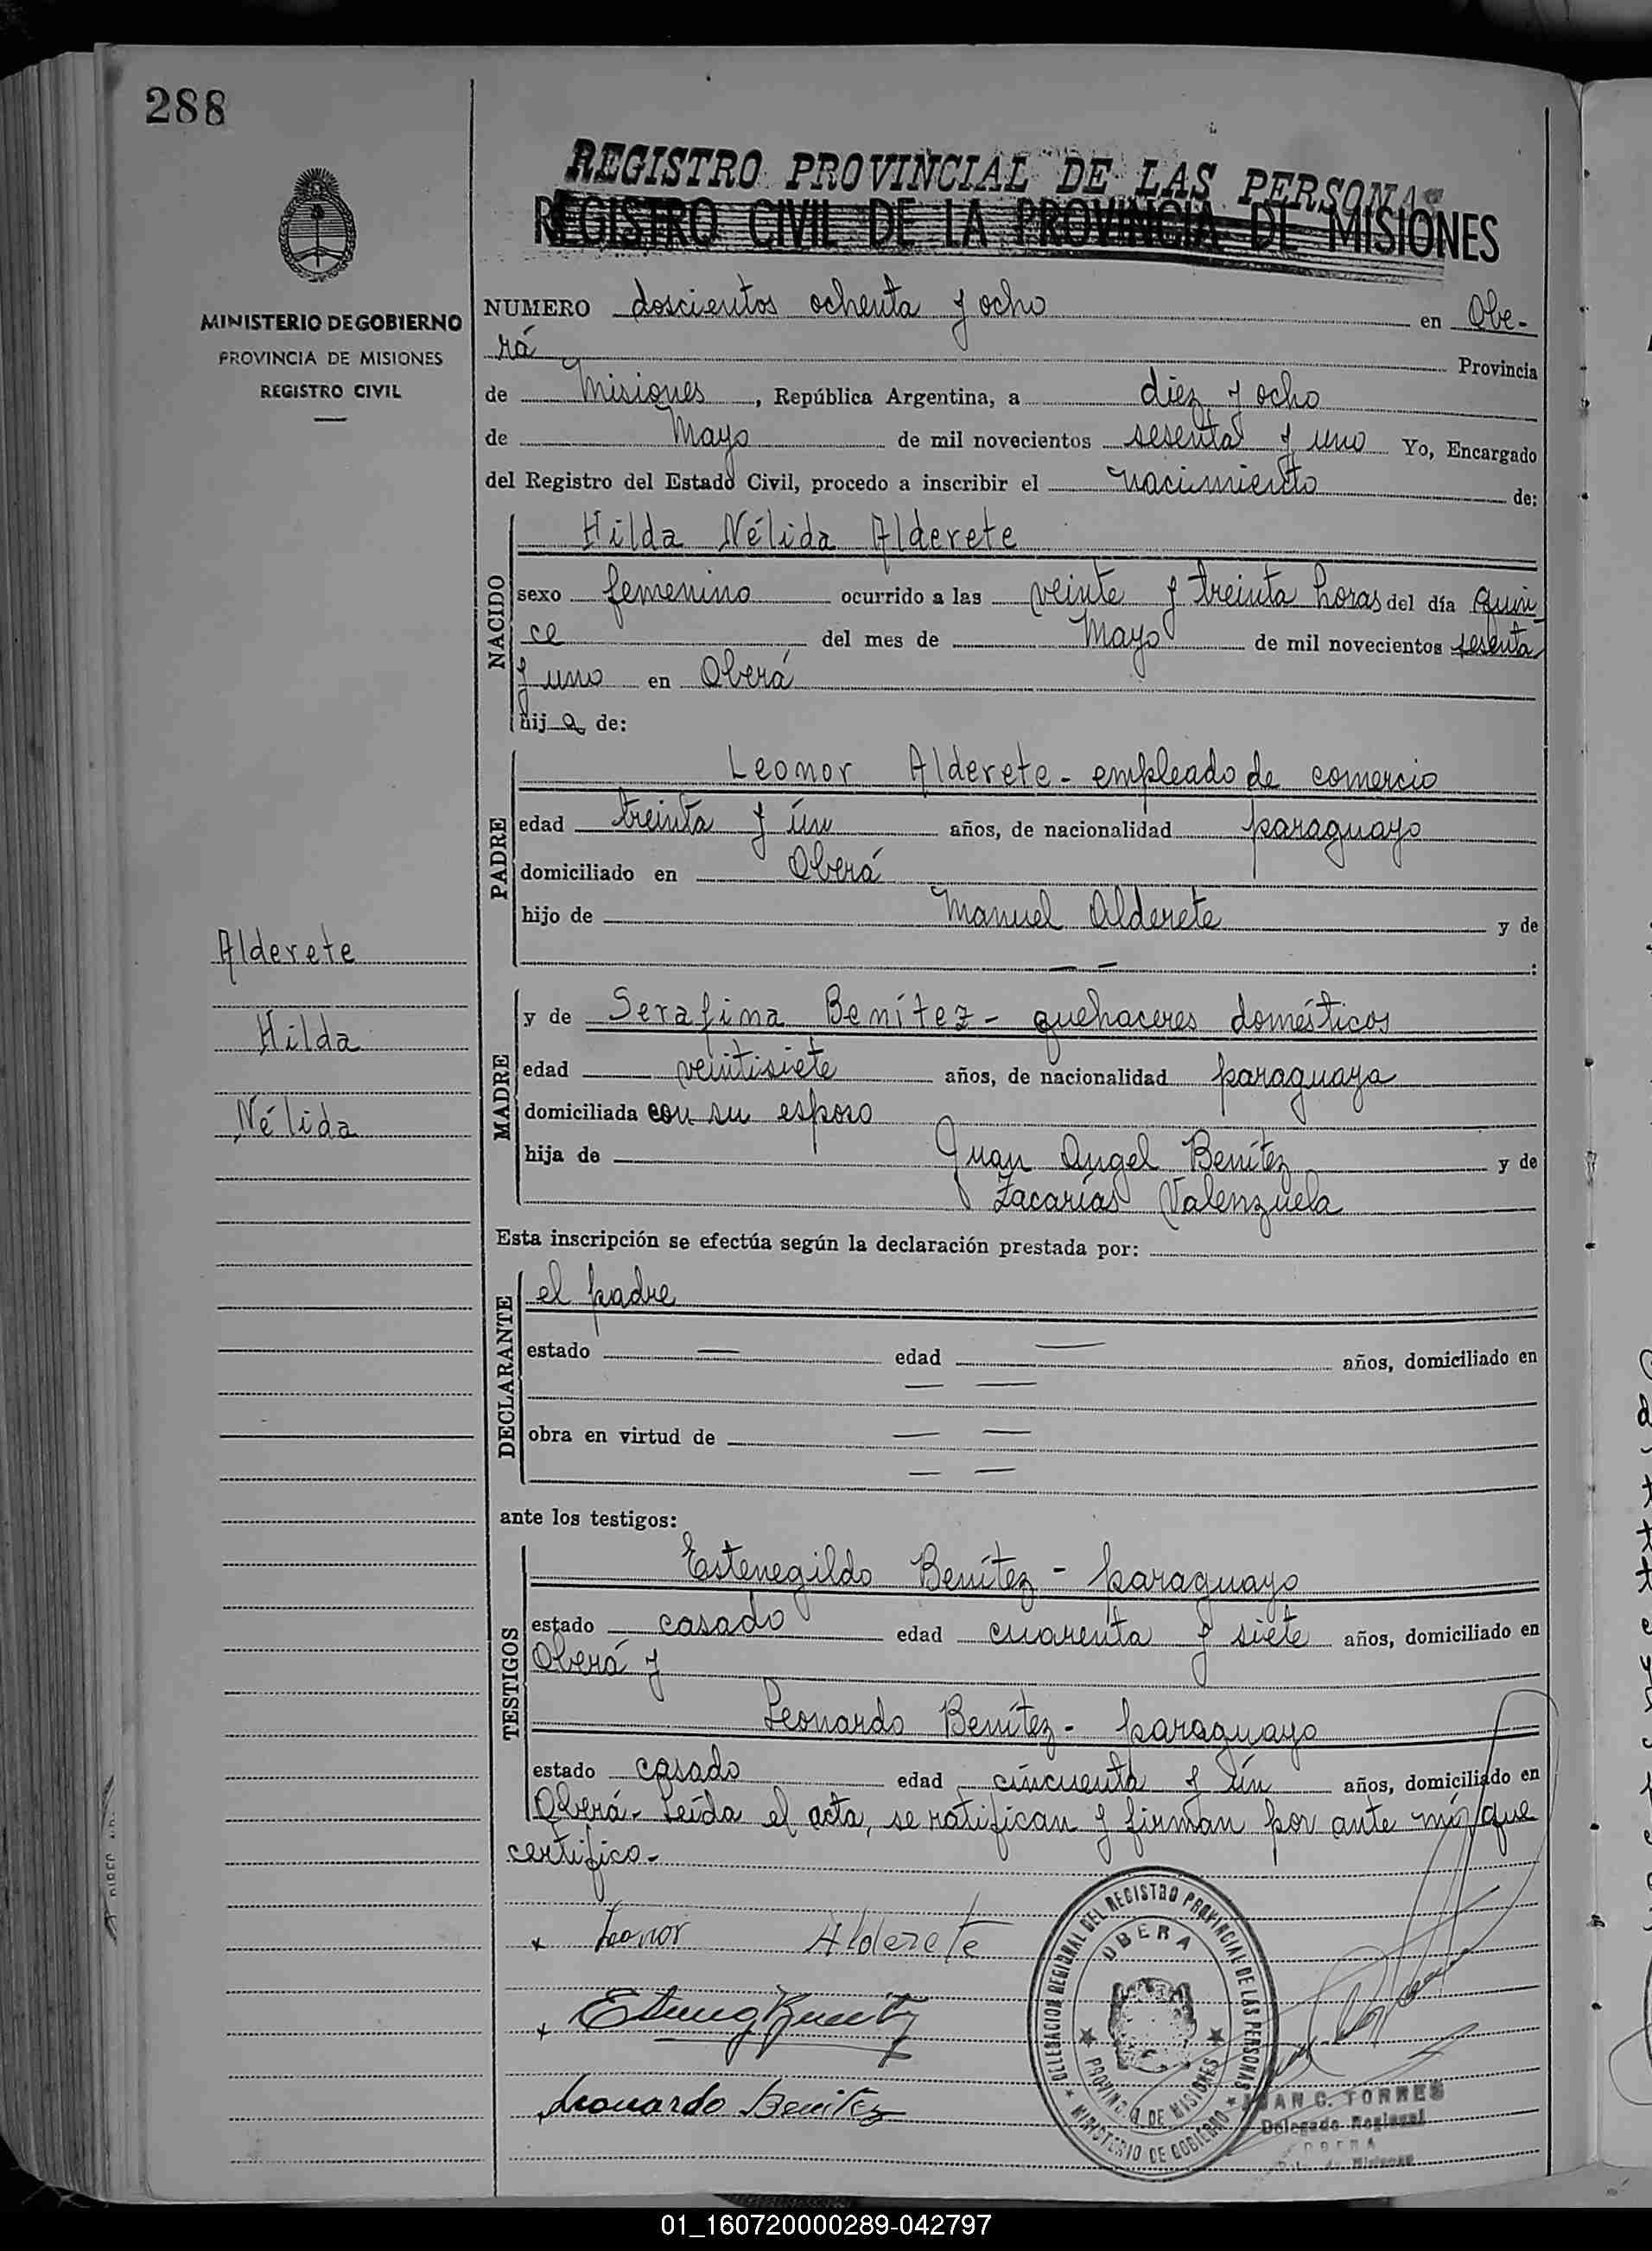 288
REGISTRO PROVINCIAL DE LAS PERSONAS
REGISTRO CIVIL DE LA PROVINCIA DE MISIONES
MINISTERIO DE GOBIERNO
PROVINCIA DE MISIONES
REGISTRO CIVIL
NUMERO doscientos ochenta y ocho en Obe-
rá Provincia
de Misiones, República Argentina, a diez y ocho
de Mayo de mil novecientos sesenta y uno Yo, Encargado
del Registro del Estado Civil, procedo a inscribir el nacimiento de:
NACIDO
Hilda Nélida Alderete
sexo femenino ocurrido a las veinte y treinta horas del día quin
ce del mes de Mayo de mil novecientos sesenta
y uno en Oberá
hija de:
PADRE
Leonor Alderete - empleado de comercio
edad treinta y ún años, de nacionalidad paraguayo
domiciliado en Oberá
hijo de Manuel Alderete y de
— — :
Alderete
Hilda
Nélida
MADRE
y de Serafina Benítez - quehaceres domésticos
edad veintisiete años, de nacionalidad paraguaya
domiciliada con su esposo
hija de Juan Angel Benítez y de
Zacarías Valenzuela
Esta inscripción se efectúa según la declaración prestada por:
DECLARANTE
el padre
estado — edad — años, domiciliado en
— —
obra en virtud de — —
— —
ante los testigos:
TESTIGOS
Estenegildo Benítez - paraguayo
estado casado edad cuarenta y siete años, domiciliado en
Oberá y
Leonardo Benítez - paraguayo
estado casado edad cincuenta y ún años, domiciliado en
Oberá. Leída el acta, se ratifican y firman por ante mí que
certifico.-
x Leonor Alderete
x
Leonardo Benitez
DELEGACION REGIONAL DEL REGISTRO PROVINCIAL DE LAS PERSONAS
OBERA
PROVINCIA DE MISIONES
MINISTERIO DE GOBIERNO
JUAN C. TORRES
Delegado Regional
OBERA
01_160720000289-042797